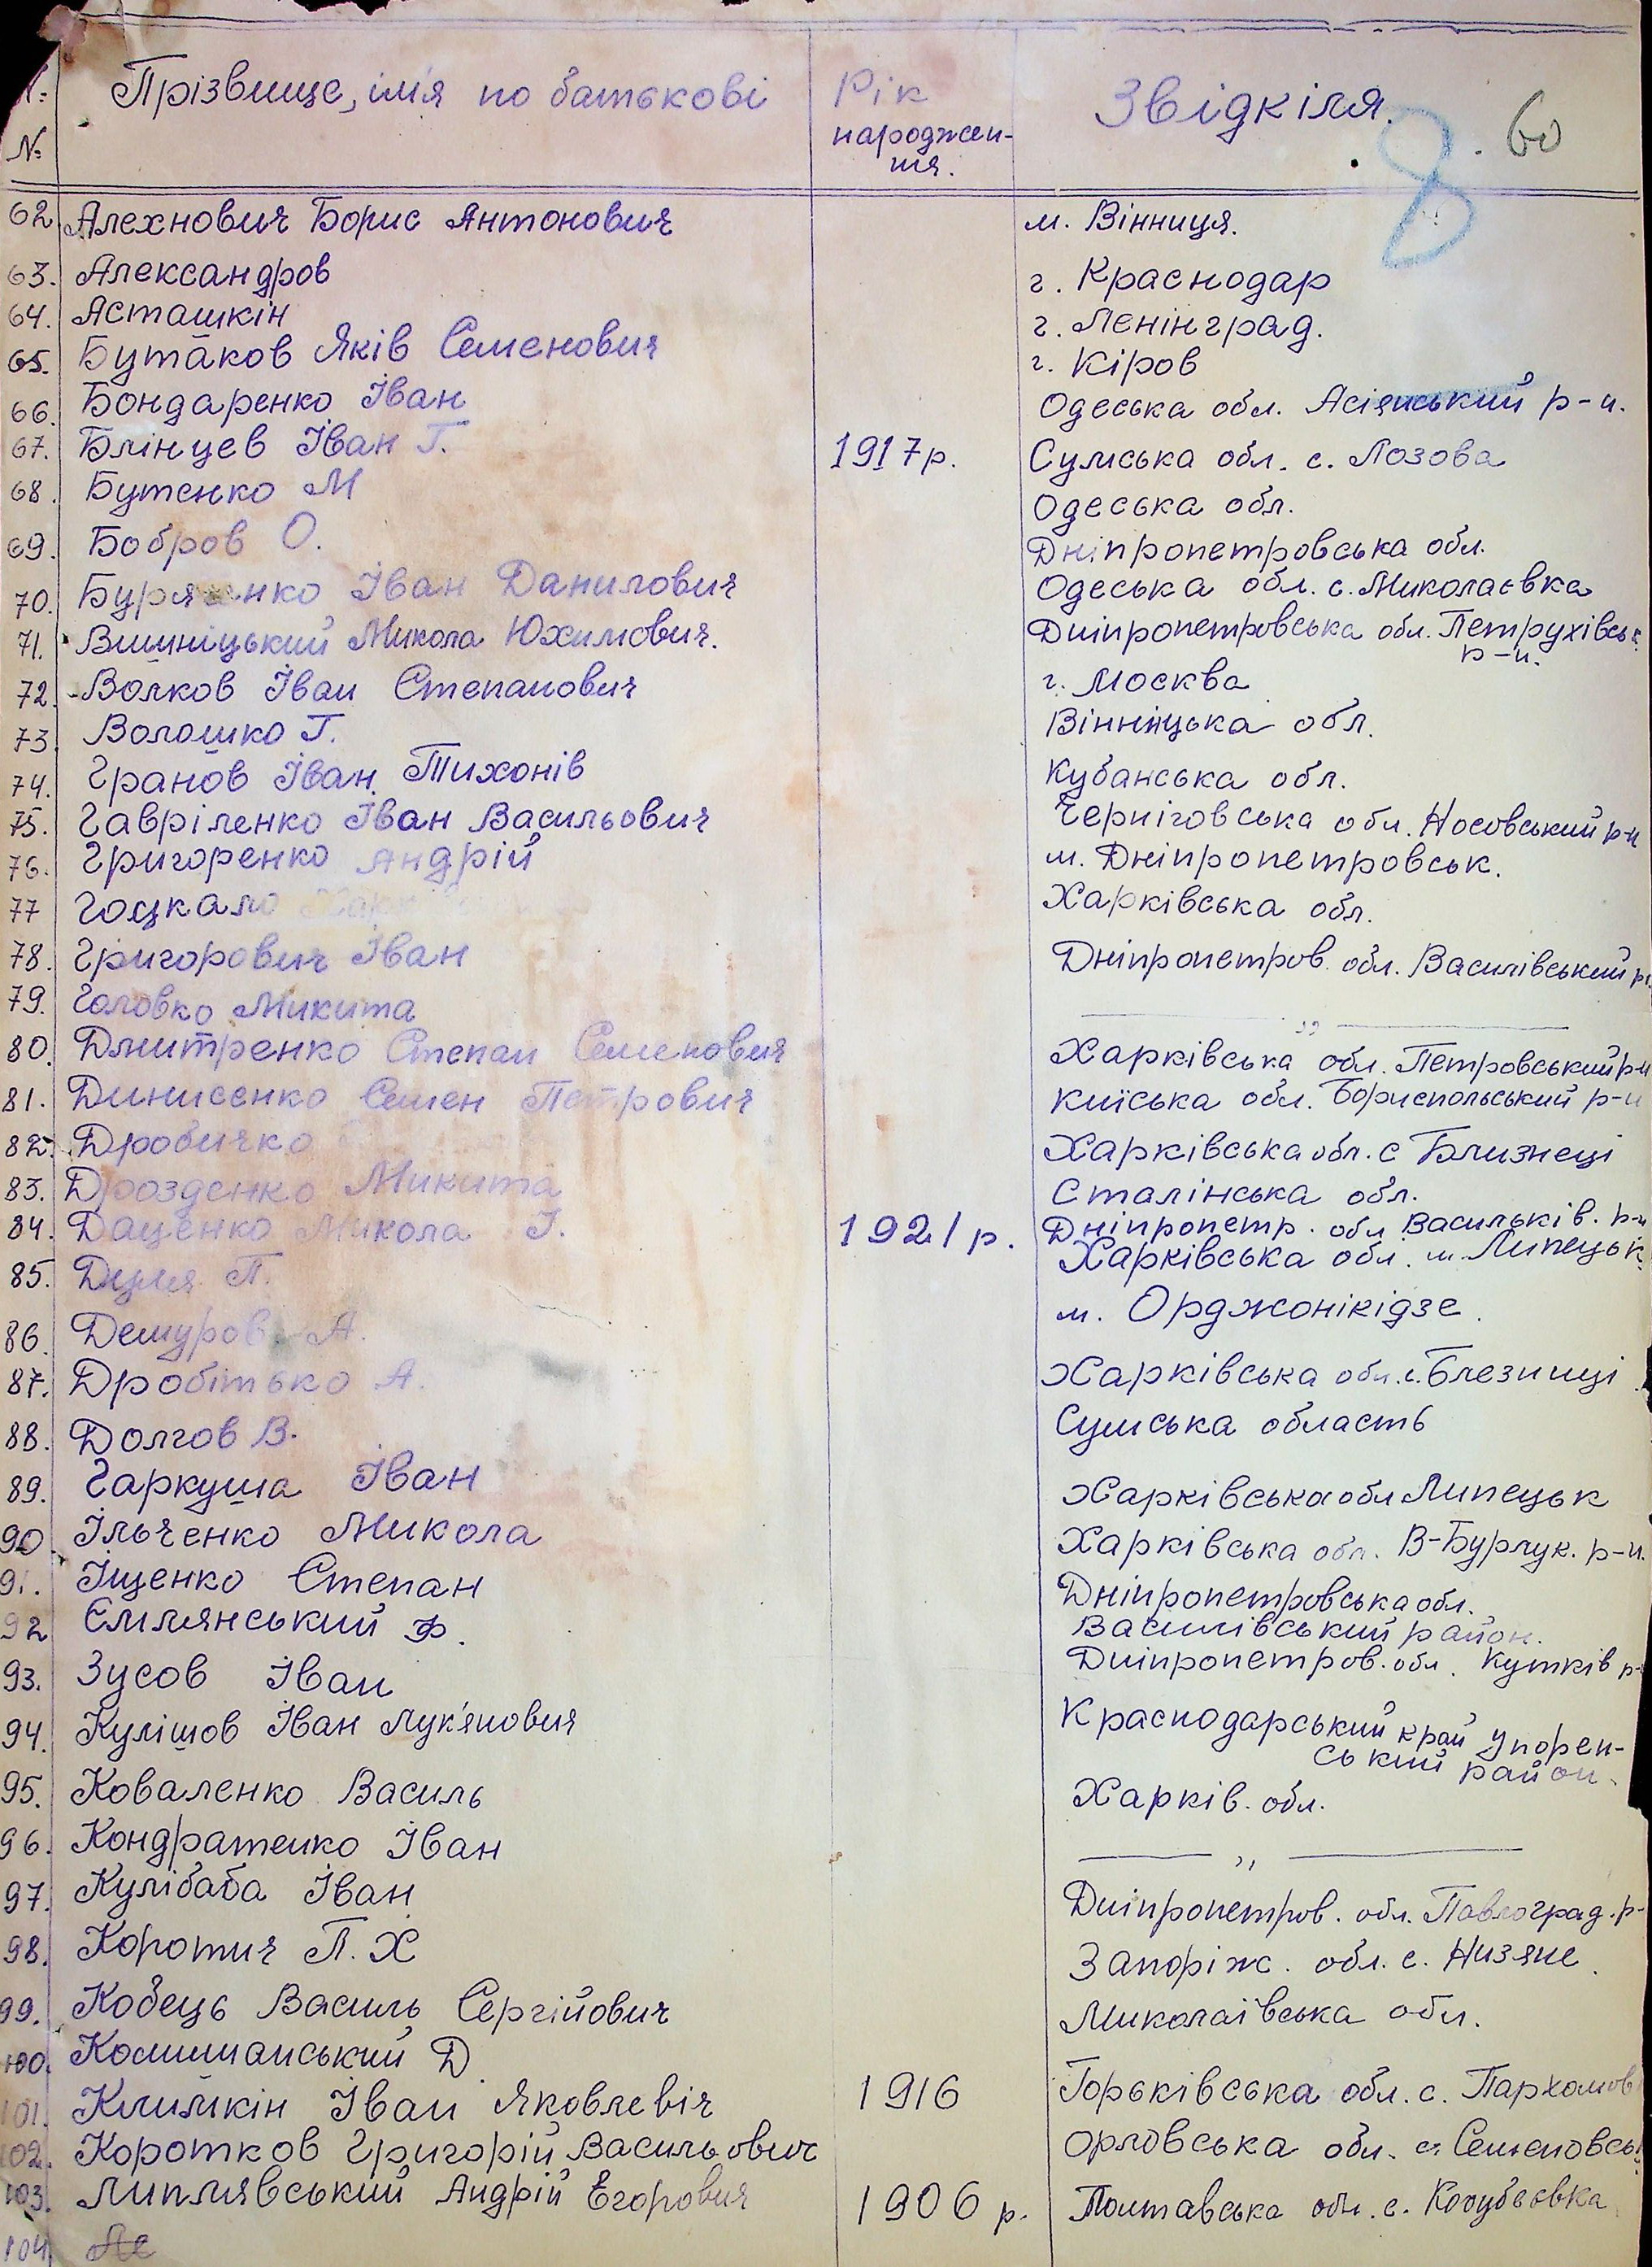 № Прізвище, ім'я по батькові Рік народжен-
ня. Звідкіля. 8 60
62. Алехнович Борис Антонович м. Вінниця.
63. Александров г. Краснодар
64. Асташкін г. Ленінград.
65. Бутаков Яків Семенович г. Кіров
66. Бондаренко Іван Одеська обл. р-н.
67. Блінцев Іван Г. 1917р. Сумська обл. с. Лозова
68. Бутенко М Одеська обл.
69. Бобров О. Дніпропетровська обл.
70. Іван Данилович Одеська обл. с. Миколаєвка
71. Вишніцький Микола Юхимович. Дніпропетровська обл. Петрухівськ.
р-н.
72. Волков Іван Степанович г. Москва
73. Волошко Г. Вінницька обл.
74. Гранов Іван Тихонів Кубанська обл.
75. Гавріленко Іван Васильович Черніговська обл. Носовський р-н
76. Григоренко Андрій м. Дніпропетровськ.
77 Гоцкало Харківська обл.
78. Григорович Іван Дніпропетров. обл. Василівський р-
79. Головко Микита —— „ ——
80. Дмитренко Степан Семенович Харківська обл. Петровський р-н
81. Динисенко Семен Петрович Київська обл. Бориспольський р-н
82. Дровичко Харківська обл. с Близнеці
83. Дрозденко Микита Сталінська обл.
84. Даценко Микола І. 1921р. Дніпропетр. обл Васильків. р-н
85. П. Харківська обл. м. Липецьк
86. Демуров А. м. Орджонікідзе.
87. Дробітько А. Харківська обл. с. Блезниці
88. Долгов В. Сумська область
89. Гаркуша Іван Харківська обл Липецьк
90. Ільченко Микола Харківська обл. В-Бурлук. р-н.
91. Іщенко Степан Дніпропетровська обл.
92 Ємлянський Ф. Василівський район.
93. Зусов Іван Дніпропетров. обл. Кутків р-
94. Кулішов Іван Лук'янович Краснодарський край Упорен-
ський район.
95. Коваленко Василь Харків. обл.
96. Кондратенко Іван —— „ ——
97. Кулібаба Іван Дніпропетров. обл. Павлоград. р-
98. Коротич П. Х Запоріж. обл. с. Низяне.
99. Кобець Василь Сергійович Миколаївська обл.
100. Д.
101. Климкін Іван Яковлевіч 1916 Горьківська обл. с. Пархомов
102. Коротков Григорій Васильович Орловська обл. Семеновськ
103. Липлявський Андрій Егорович 1906 р. Полтавська обл. с. Кочубеєвка
104